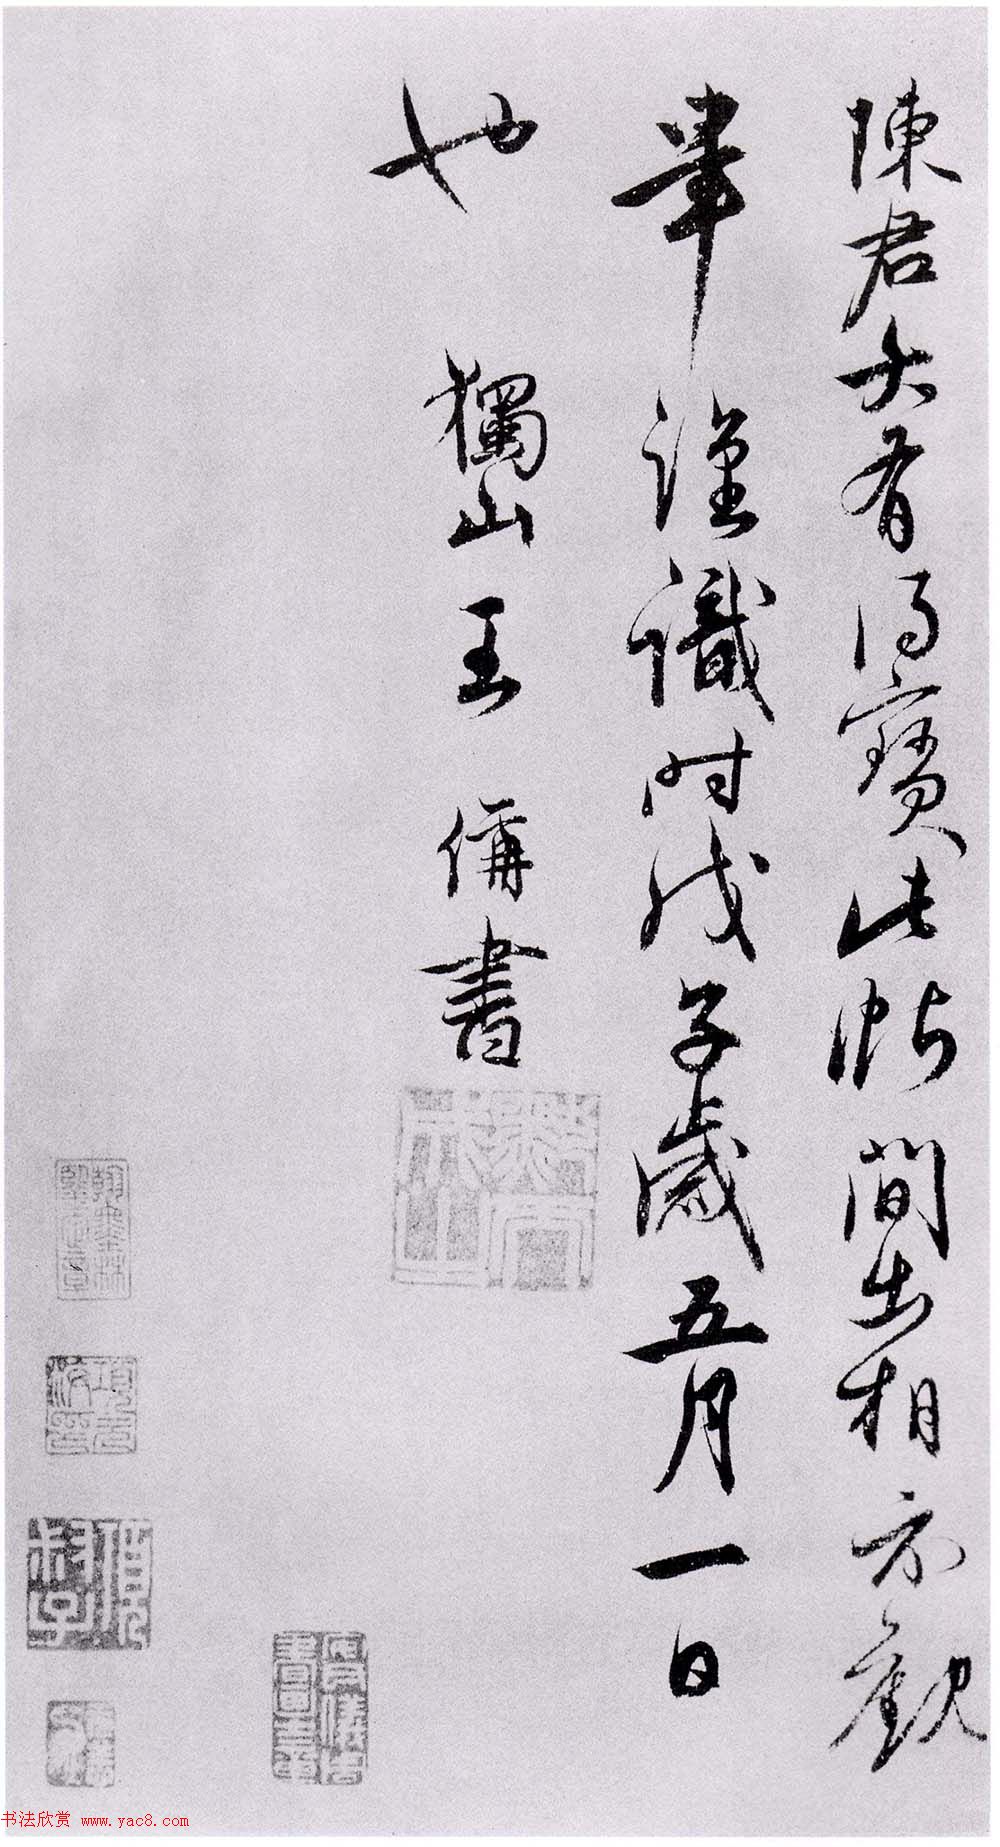 陳君大有得寶此帖間出相示觀
畢謹識時戊子歲五月一日
也 獨山王備書
书法欣赏 www.yac8.com